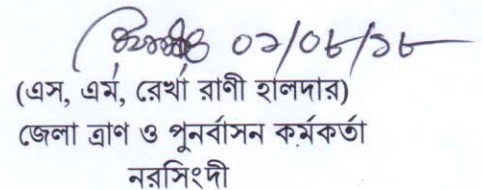 ০১/০৮/১৮
(এস, এম, রেখা রাণী হালদার)
জেলা ত্রাণ ও পুনর্বাসন কর্মকর্তা
নরসিংদী